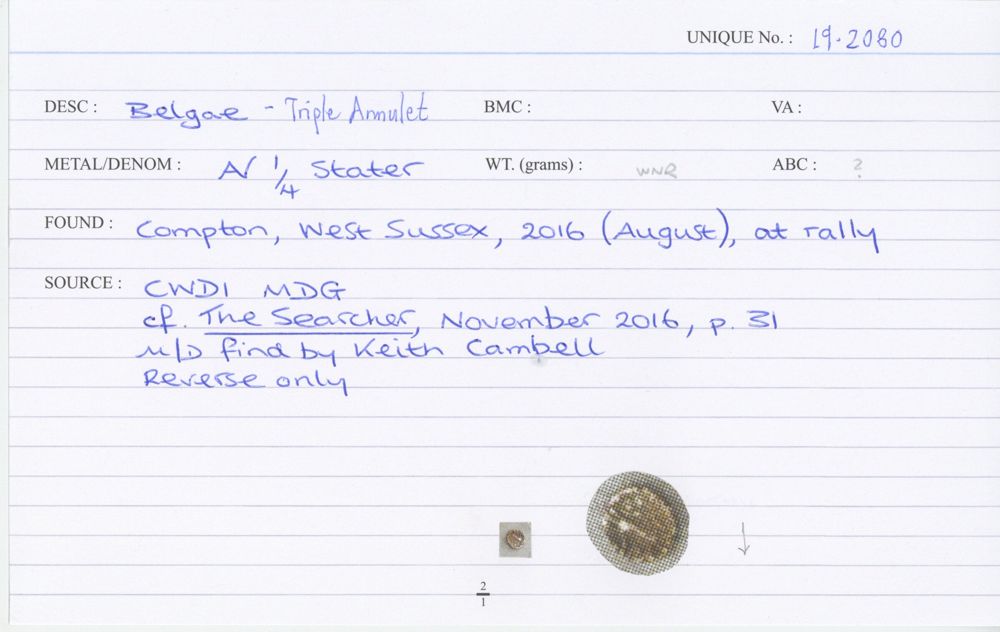 UNIQUE No. : 19-2080
DESC : Belgae - Triple Annulet BMC : VA :
METAL/DENOM : A/ 1/4 Stater WT. (grams) : WNR ABC : ?
FOUND : Compton, West Sussex, 2016 (August), at rally
SOURCE : CWDI MDG
cf. The Searcher, November 2016, p. 31
M/D find by Keith Cambell
Reverse only
2
1